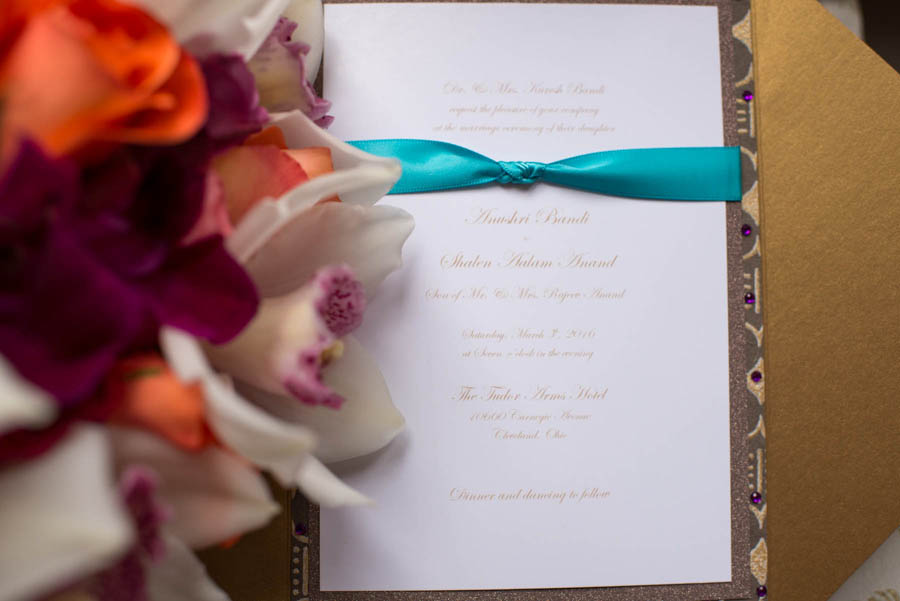 Dr. & Mrs. Naresh Bandi
request the pleasure of your company
at the marriage ceremony of their daughter
Anushri Bandi
Shalen Aalam Anand
Son of Mr. & Mrs. Rajeev Anand
Saturday, March 5, 2016
at Seven o'clock in the evening
The Tudor Arms Hotel
10660 Carnegie Avenue
Cleveland, Ohio
Dinner and dancing to follow